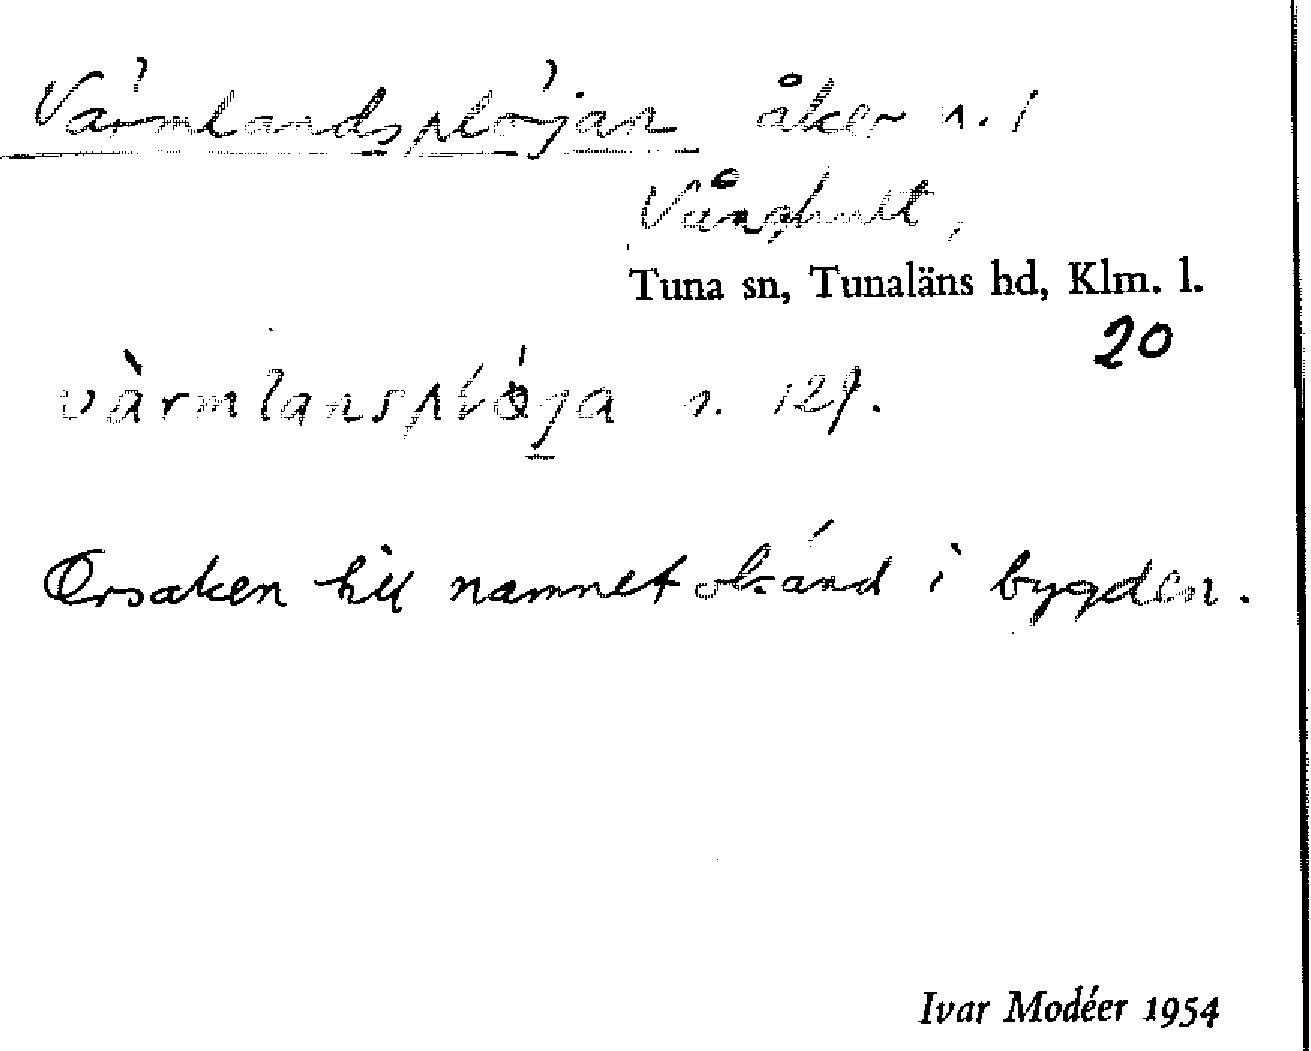 Värmlandsplöjan åker n. 1
Vånghult,
Tuna sn, Tunaläns hd, Klm. l.
20
vàrmlansplö́ja n. 129.
Orsaken till namnet okänd i bygden.
Ivar Modéer 1954